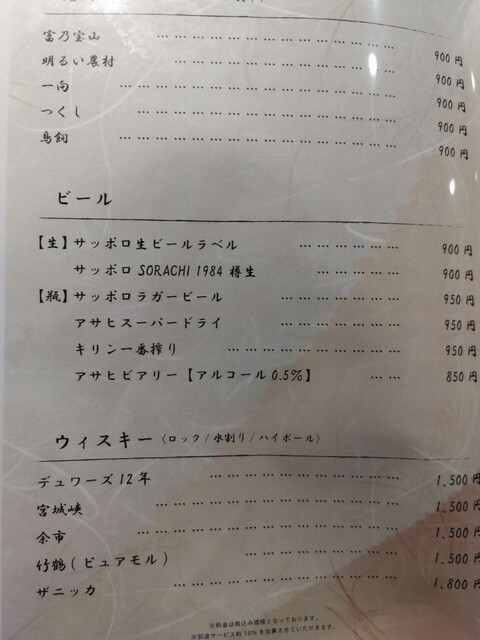 富乃宝山 … … … … … … … … … … … 900円
明るい農村 … … … … … … … … … … 900円
一尚 … … … … … … … … … … … … 900円
つくし … … … … … … … … … … … 900円
鳥飼 … … … … … … … … … … … … 900円
ビール
【生】サッポロ生ビールラベル … … … … … … 900円
サッポロ SORACHI 1984 樽生 … … … … 900円
【瓶】サッポロラガービール … … … … … … 950円
アサヒスーパードライ … … … … … … 950円
キリン一番搾り … … … … … … … … 950円
アサヒビアリー【アルコール0.5%】 … … 850円
ウィスキー〈ロック/水割り/ハイボール〉
デュワーズ12年 … … … … … … … … … 1,500円
宮城峡 … … … … … … … … … … … 1,500円
余市 … … … … … … … … … … … … 1,500円
竹鶴(ピュアモル) … … … … … … … … 1,500円
ザニッカ … … … … … … … … … … … 1,800円
※料金は税込み価格となっております。
※別途サービス料10%を加算させていただきます。